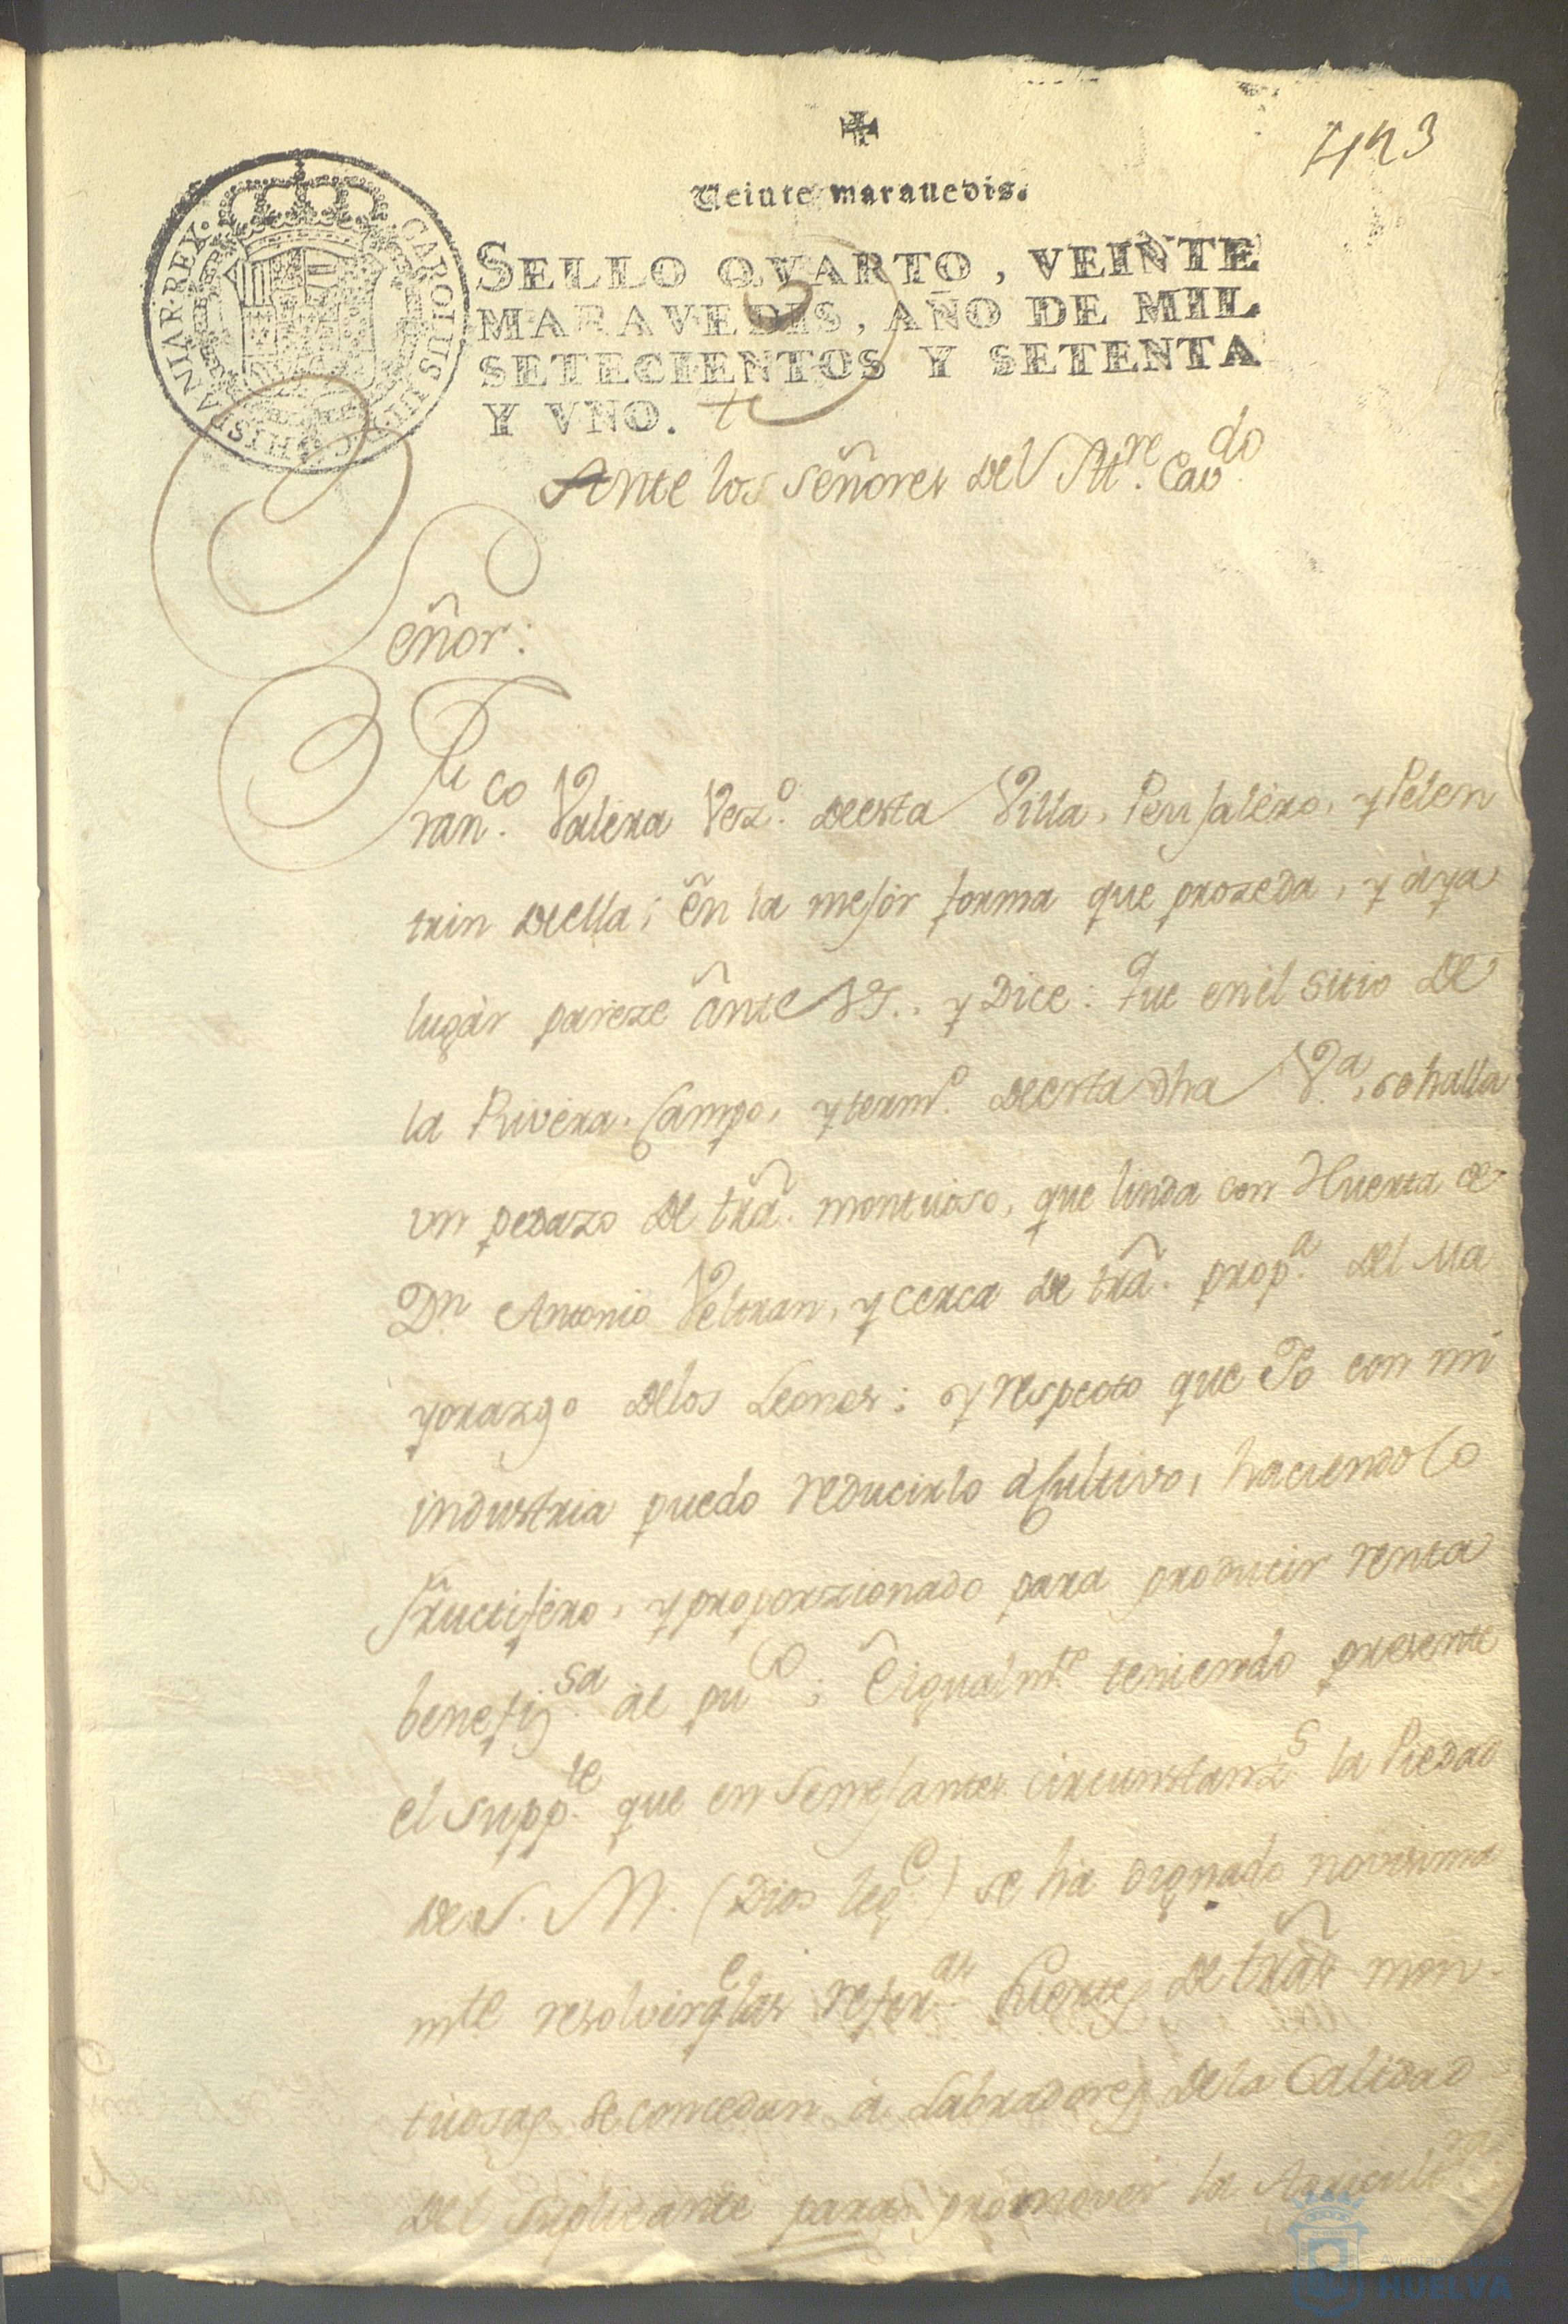 423
Veinte marauedis.
CAROLUS III D G HISPANIAR REX
SELLO QVARTO, VEINTE
MARAVEDIS, AÑO DE MIL
SETECIENTOS Y SETENTA
Y VNO.
Ante los señores del Ittre. Cavdo
Señor:
Franco. Valera Vezo. deesta Villa, Penjalero, y Pelen
trin deella; en la mejor forma que prozeda, y àya
lugàr pareze ante VS.. y Dice: Que enèl sitio de
la Rivera, Campo, y termo. deesta dha Va., sehalla
un pedazo de tra. montuoso, que linda con Huerta de
Dn Antonio Veltran, y cerca de tra. propa. del Ma
yorazgo delos Leones; y respecto que Yo con mi
industria puedo reducirlo à Cultivo, haciendolo
fructifero, y proporzionado para producir renta
benefizsa. àl puco; èigualmte teniendo presente
el suppte. que en semejantes circunstanzs la Piedad
de S. M. (Dios lege) se ha dignado novisima
mte resolver qe las referas. suertes de tras mon-
tuosas se concedan à Labradores dela Calidad
del suplicante para promover la Agricultra
Ayuntamiento de
HUELVA